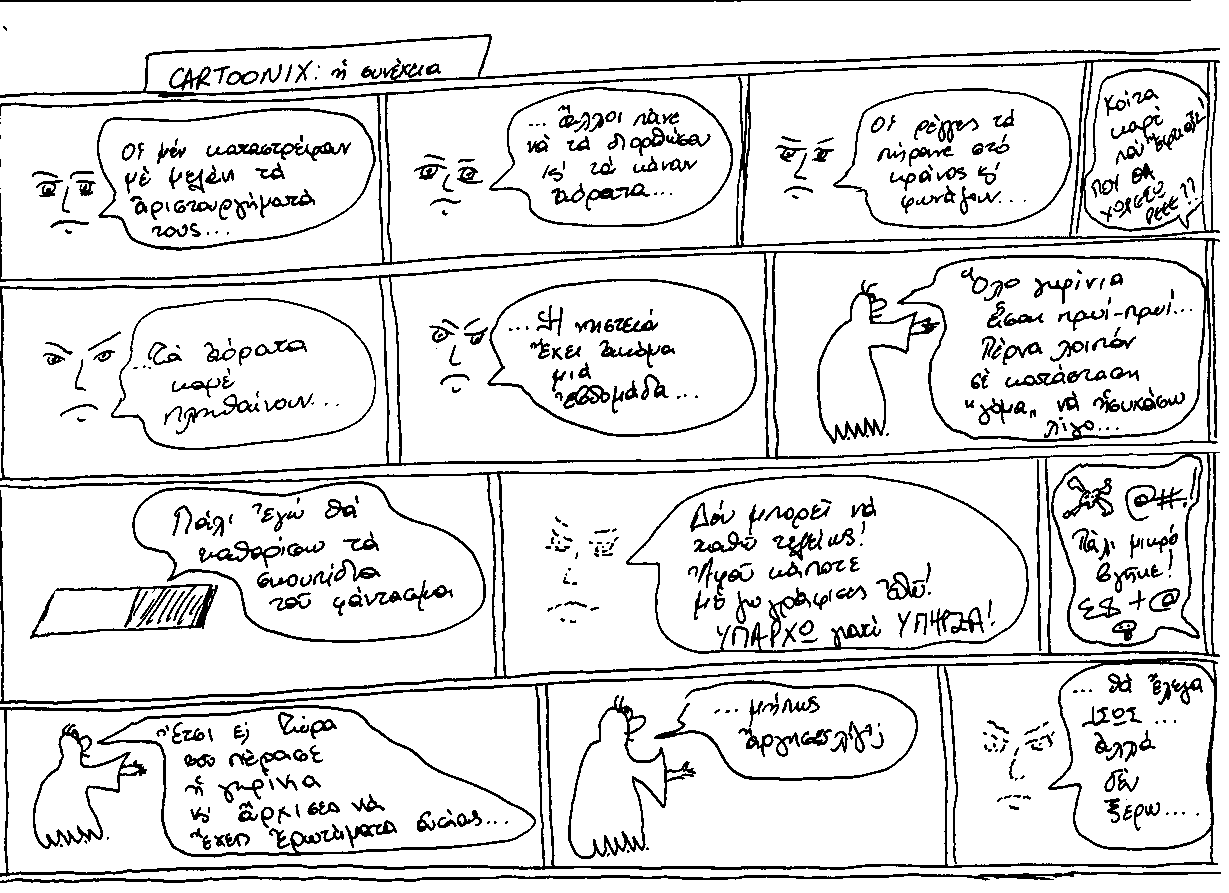 CARTOONIX: ἡ συνέχεια
Οἱ μέν καταστρέψαν
μὲ μελάνι τά
ἀριστουργήματά
τους...
... ἄλλοι πᾶνε
νὰ τὰ διορθώσουν
κι' τὰ κάναν
ἀόρατα...
Οἱ ρέγγες τά
πήρανε στό
κρᾶνος κι'
φωνάζουν...
Κοίτα
καρὲ
ποὺ
ΠΟΥ ΘΑ
ΧΩΡΕΣΩ
ΡΕΕΕ??
...Τὰ ἀόρατα
καρέ
πληθαίνουν...
...Ἡ νηστειά
ἔχει ἀκόμα
μιά
ἑβδομάδα...
Ὅλο γκρίνια
εἶσαι πρωί-πρωί...
Πέρνα λοιπόν
σὲ κατάσταση
"γόμα" νὰ ἡσυχάσω
λίγο...
Πάλι ἐγώ θά
καθαρίσω τὰ
σκουπίδια
τοῦ φάντασμα
Δέν μπορεῖ νά
χαθῶ τελείως!
Ἀφοῦ κάποτε
μὲ ζωγράφισες ἐδῶ!
ΥΠΑΡΧΩ γιατί ΥΠΗΡΞΑ!
@#!
Πάλι μικρό
βγῆκε!
£$+@
Ἔτσι εἶ τώρα
σου πέρασε
ἡ γκρίνια
κι' ἄρχισες νὰ
ἔχεις ἐρωτήματα οὐσίας...
... μήπως
ἄργησες λίγο;
... θά ἔλεγα
ΙΣΩΣ ...
ἀλλά
δέν
ξέρω....